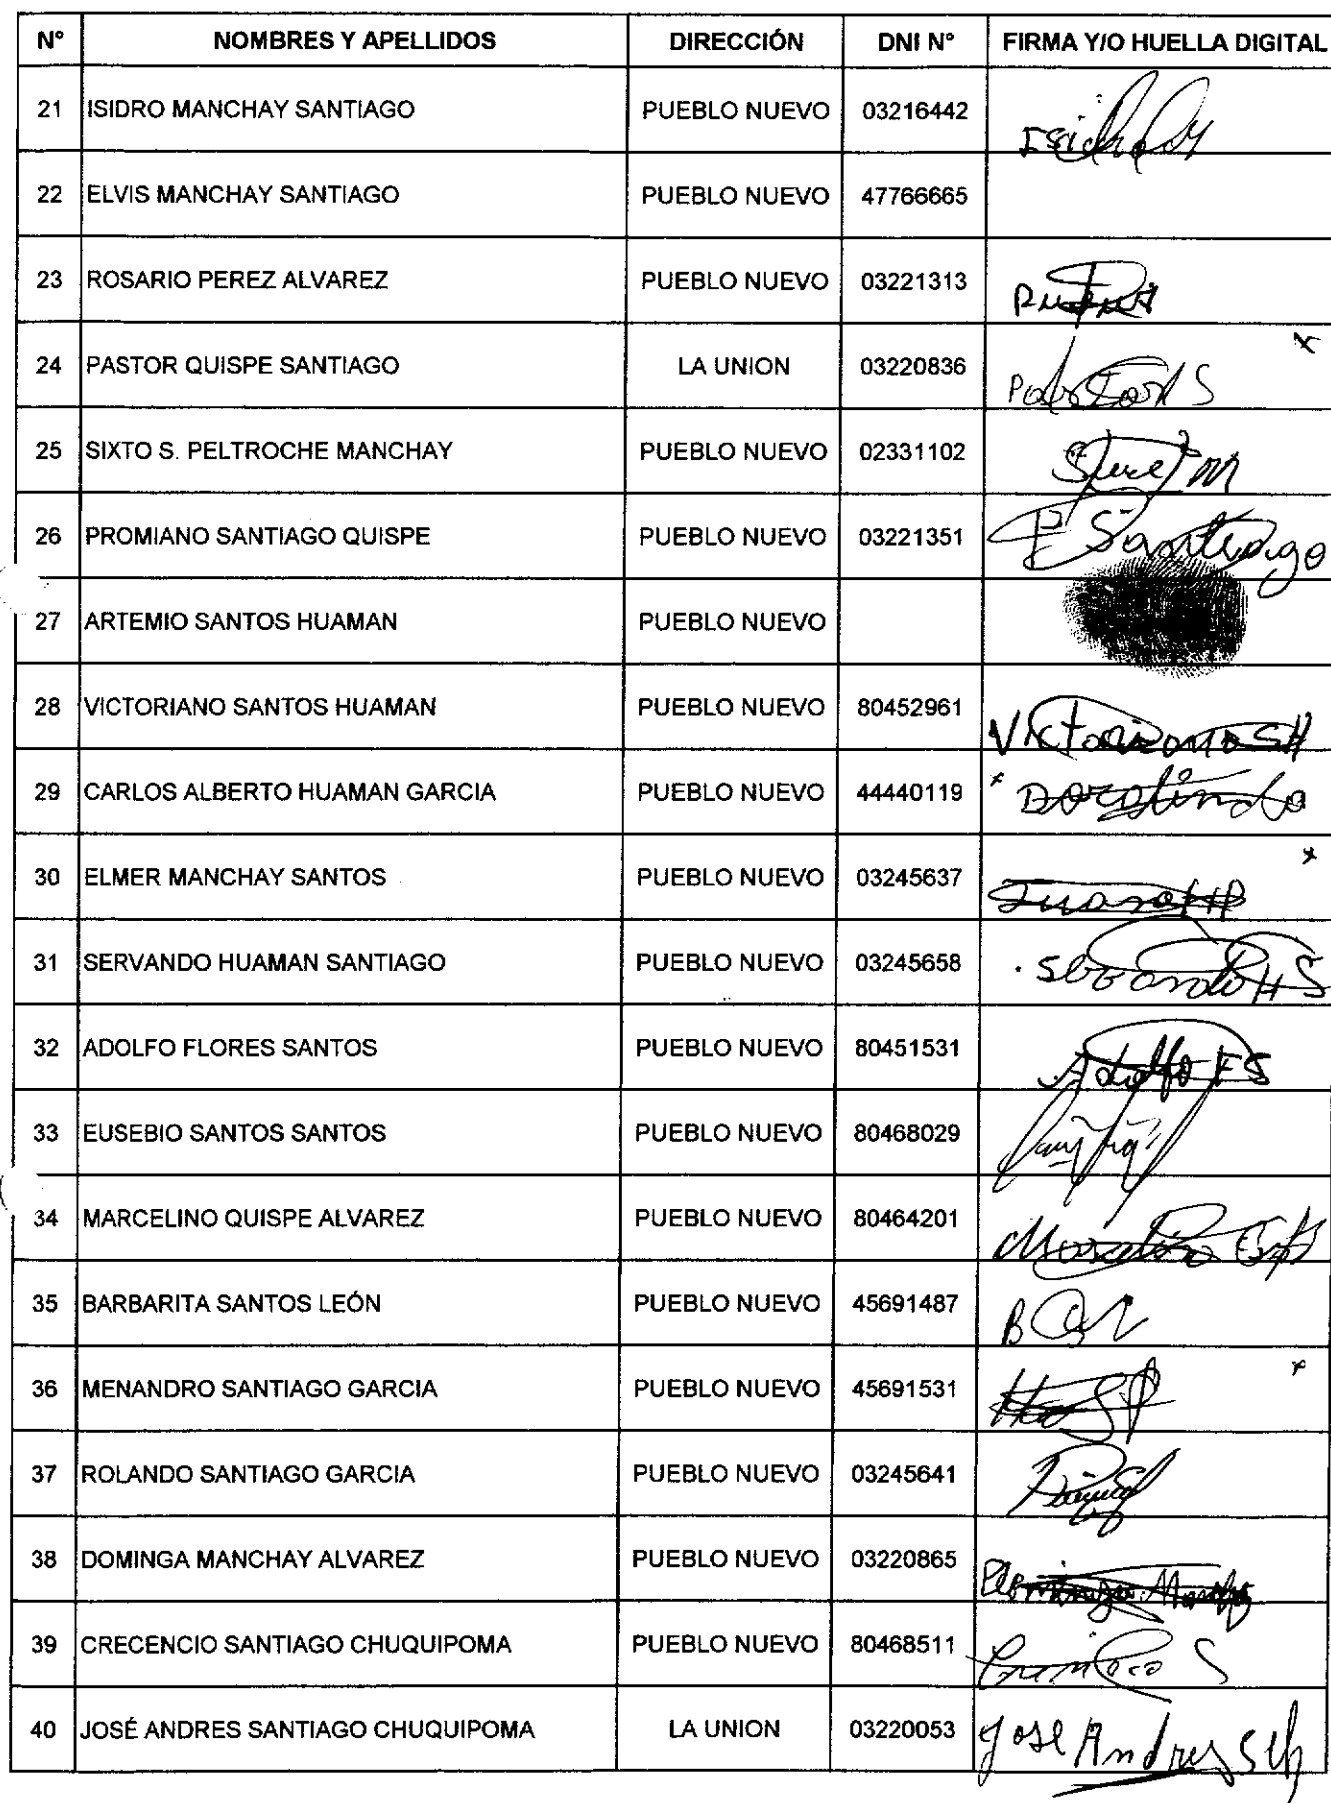 N° NOMBRES Y APELLIDOS DIRECCIÓN DNI N° FIRMA Y/O HUELLA DIGITAL
21 ISIDRO MANCHAY SANTIAGO PUEBLO NUEVO 03216442
22 ELVIS MANCHAY SANTIAGO PUEBLO NUEVO 47766665
23 ROSARIO PEREZ ALVAREZ PUEBLO NUEVO 03221313
24 PASTOR QUISPE SANTIAGO LA UNION 03220836 Pastor S x
25 SIXTO S. PELTROCHE MANCHAY PUEBLO NUEVO 02331102
26 PROMIANO SANTIAGO QUISPE PUEBLO NUEVO 03221351 P Santiago
27 ARTEMIO SANTOS HUAMAN PUEBLO NUEVO
28 VICTORIANO SANTOS HUAMAN PUEBLO NUEVO 80452961 Victoriano SH
29 CARLOS ALBERTO HUAMAN GARCIA PUEBLO NUEVO 44440119 x Doralinda
30 ELMER MANCHAY SANTOS PUEBLO NUEVO 03245637 x
31 SERVANDO HUAMAN SANTIAGO PUEBLO NUEVO 03245658
32 ADOLFO FLORES SANTOS PUEBLO NUEVO 80451531 Adolfo FS
33 EUSEBIO SANTOS SANTOS PUEBLO NUEVO 80468029
34 MARCELINO QUISPE ALVAREZ PUEBLO NUEVO 80464201
35 BARBARITA SANTOS LEÓN PUEBLO NUEVO 45691487
36 MENANDRO SANTIAGO GARCIA PUEBLO NUEVO 45691531 x
37 ROLANDO SANTIAGO GARCIA PUEBLO NUEVO 03245641
38 DOMINGA MANCHAY ALVAREZ PUEBLO NUEVO 03220865
39 CRECENCIO SANTIAGO CHUQUIPOMA PUEBLO NUEVO 80468511
40 JOSÉ ANDRES SANTIAGO CHUQUIPOMA LA UNION 03220053 Jose Andres SCh